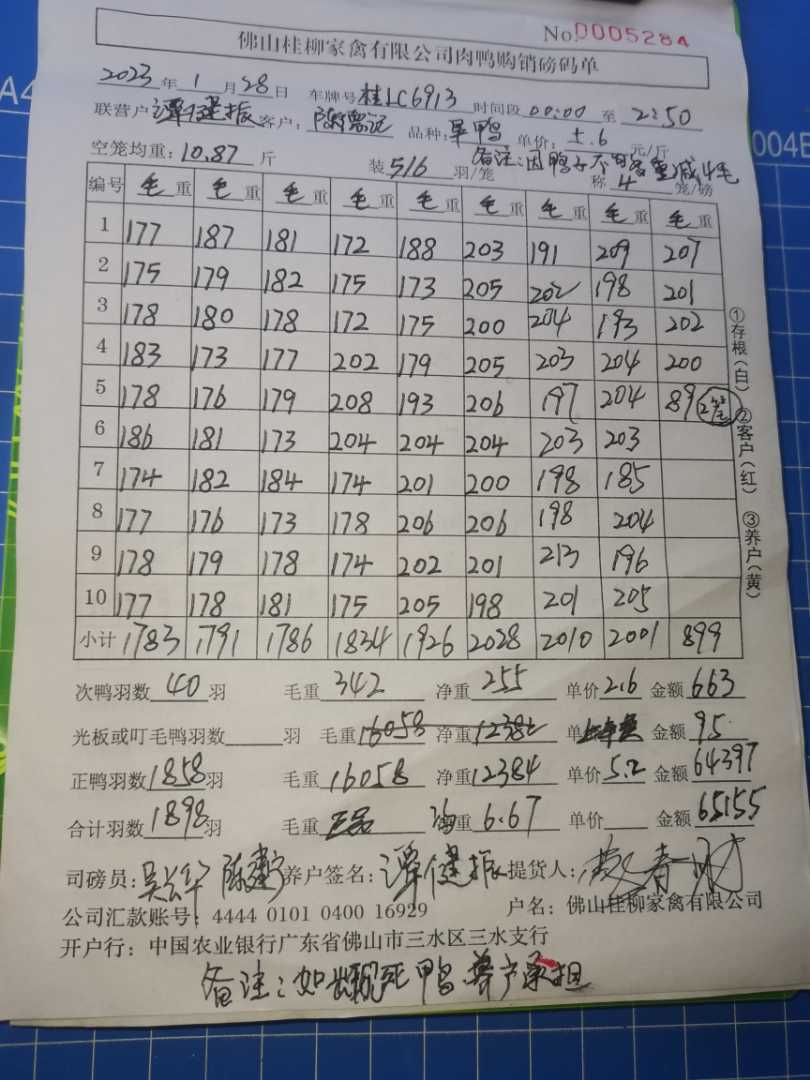 No.0005284
佛山桂柳家禽有限公司肉鸭购销磅码单
2023年1月28日 车牌号桂LC6913 时间段00:00至2:50
联营户谭健振 客户: 品种: 单价: .6元/斤
空笼均重:10.87斤 装5/6羽/笼 称4笼/磅
备注:因鸭子不 重减4毛
编号 毛重 毛重 毛重 毛重 毛重 毛重 毛重 毛重 毛重
1 177 187 181 172 188 203 191 209 207
2 175 179 182 175 173 205 202 198 201
3 178 180 178 172 175 200 204 193 202
4 183 173 177 202 179 205 203 204 200
5 178 176 179 208 193 206 197 204 89 2笼
6 186 181 173 204 204 204 203 203
7 174 182 184 174 201 200 198 185
8 177 176 173 178 206 206 198 204
9 178 179 178 174 202 201 213 196
10 177 178 181 175 205 198 201 205
小计 1783 1791 1786 1834 1926 2028 2010 2001 899
次鸭羽数40羽 毛重342 净重255 单价2.6 金额663
光板或叮毛鸭羽数 羽 毛重16058 净重1238 单 金额95
正鸭羽数1858羽 毛重16058 净重12384 单价5.2 金额64397
合计羽数1898羽 毛重 重6.67 单价 金额65155
司磅员: 陈 养户签名:谭健振 提货人:
公司汇款账号:4444 0101 0400 16929 户名:佛山桂柳家禽有限公司
开户行:中国农业银行广东省佛山市三水区三水支行
备注:如 死鸭养户承担
①存根(白) ②客户(红) ③养户(黄)